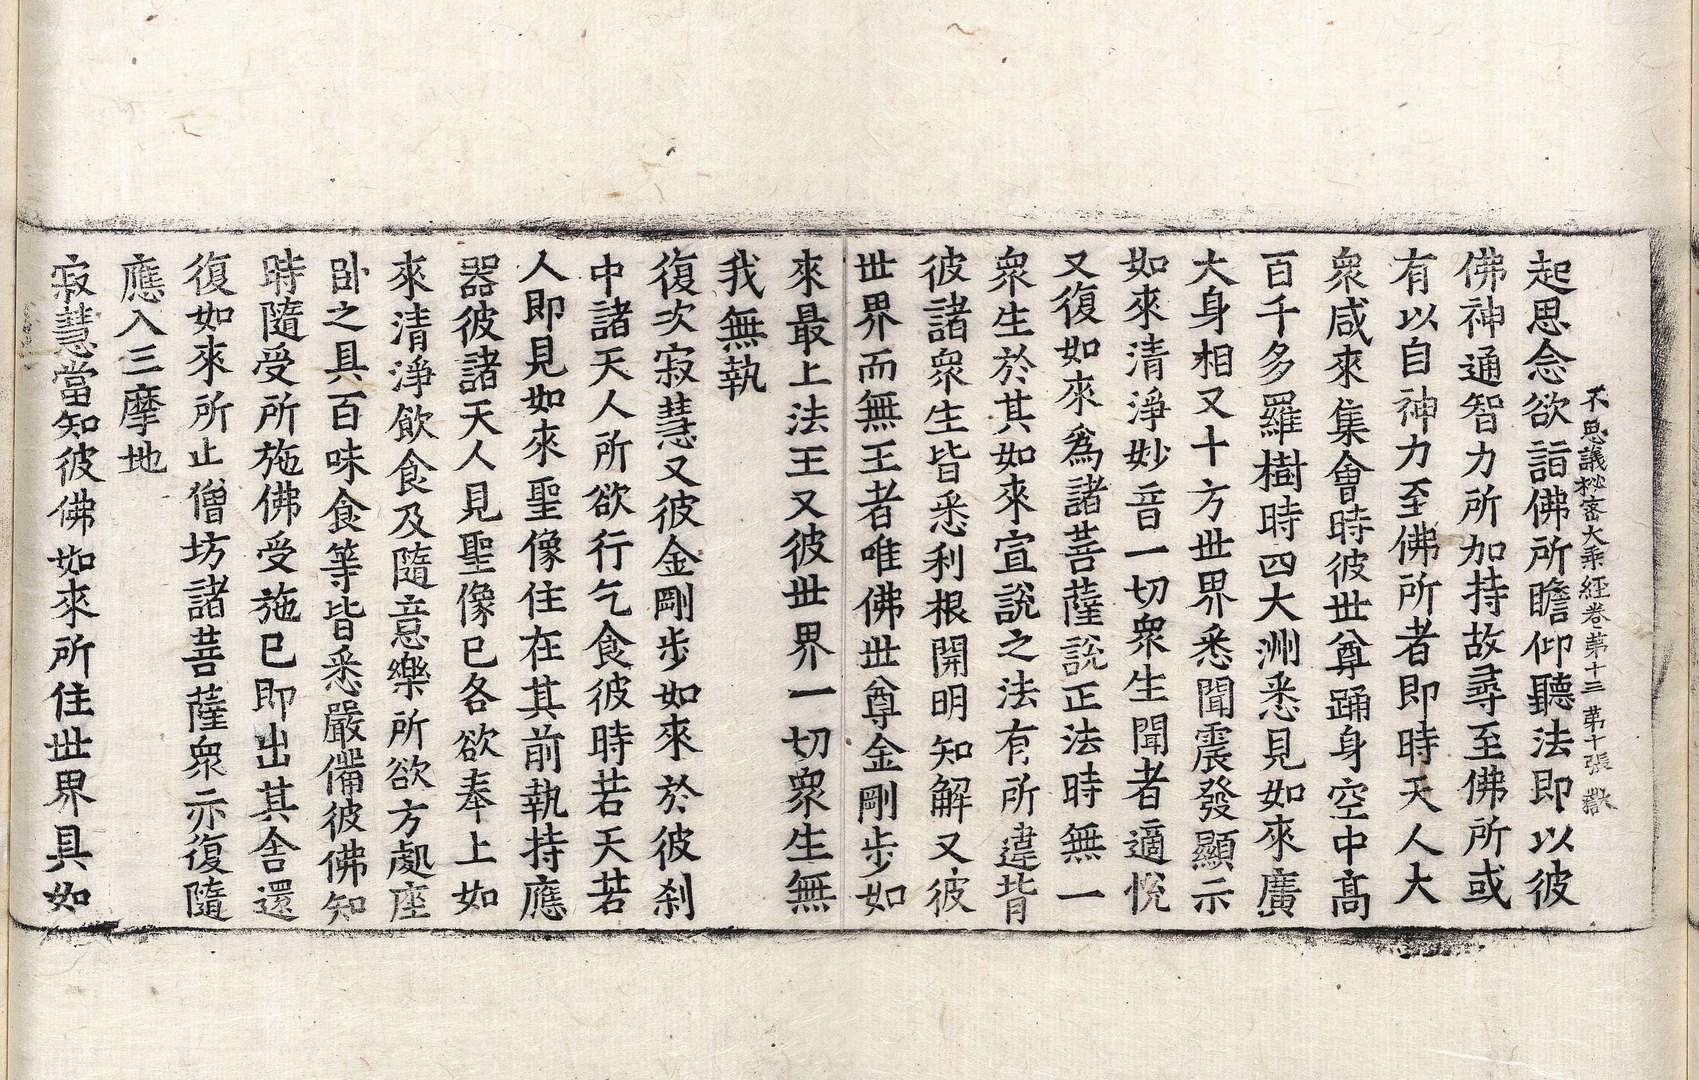 不思議秘密大乘経卷第十三 第十張 獸
起思念欲詣佛所瞻仰聽法即以彼
佛神通智力所加持故尋至佛所或
有以自神力至佛所者即時天人大
衆咸來集會時彼世尊踊身空中高
百千多羅樹時四大洲悉見如來廣
大身相又十方世界悉聞震發顯示
如來清淨妙音一切衆生聞者適悅
又復如來爲諸菩薩說正法時無一
衆生於其如來宣說之法有所違背
彼諸衆生皆悉利根開明知解又彼
世界而無王者唯佛世尊金剛步如
來最上法王又彼世界一切衆生無
我無執
復次寂慧又彼金剛步如來於彼刹
中諸天人所欲行乞食彼時若天若
人即見如來聖像住在其前執持應
器彼諸天人見聖像已各欲奉上如
來清淨飲食及隨意樂所欲方處座
卧之具百味食等皆悉嚴備彼佛知
時隨受所施佛受施已即出其舍還
復如來所止僧坊諸菩薩衆亦復隨
應入三摩地
寂慧當知彼佛如來所住世界具如